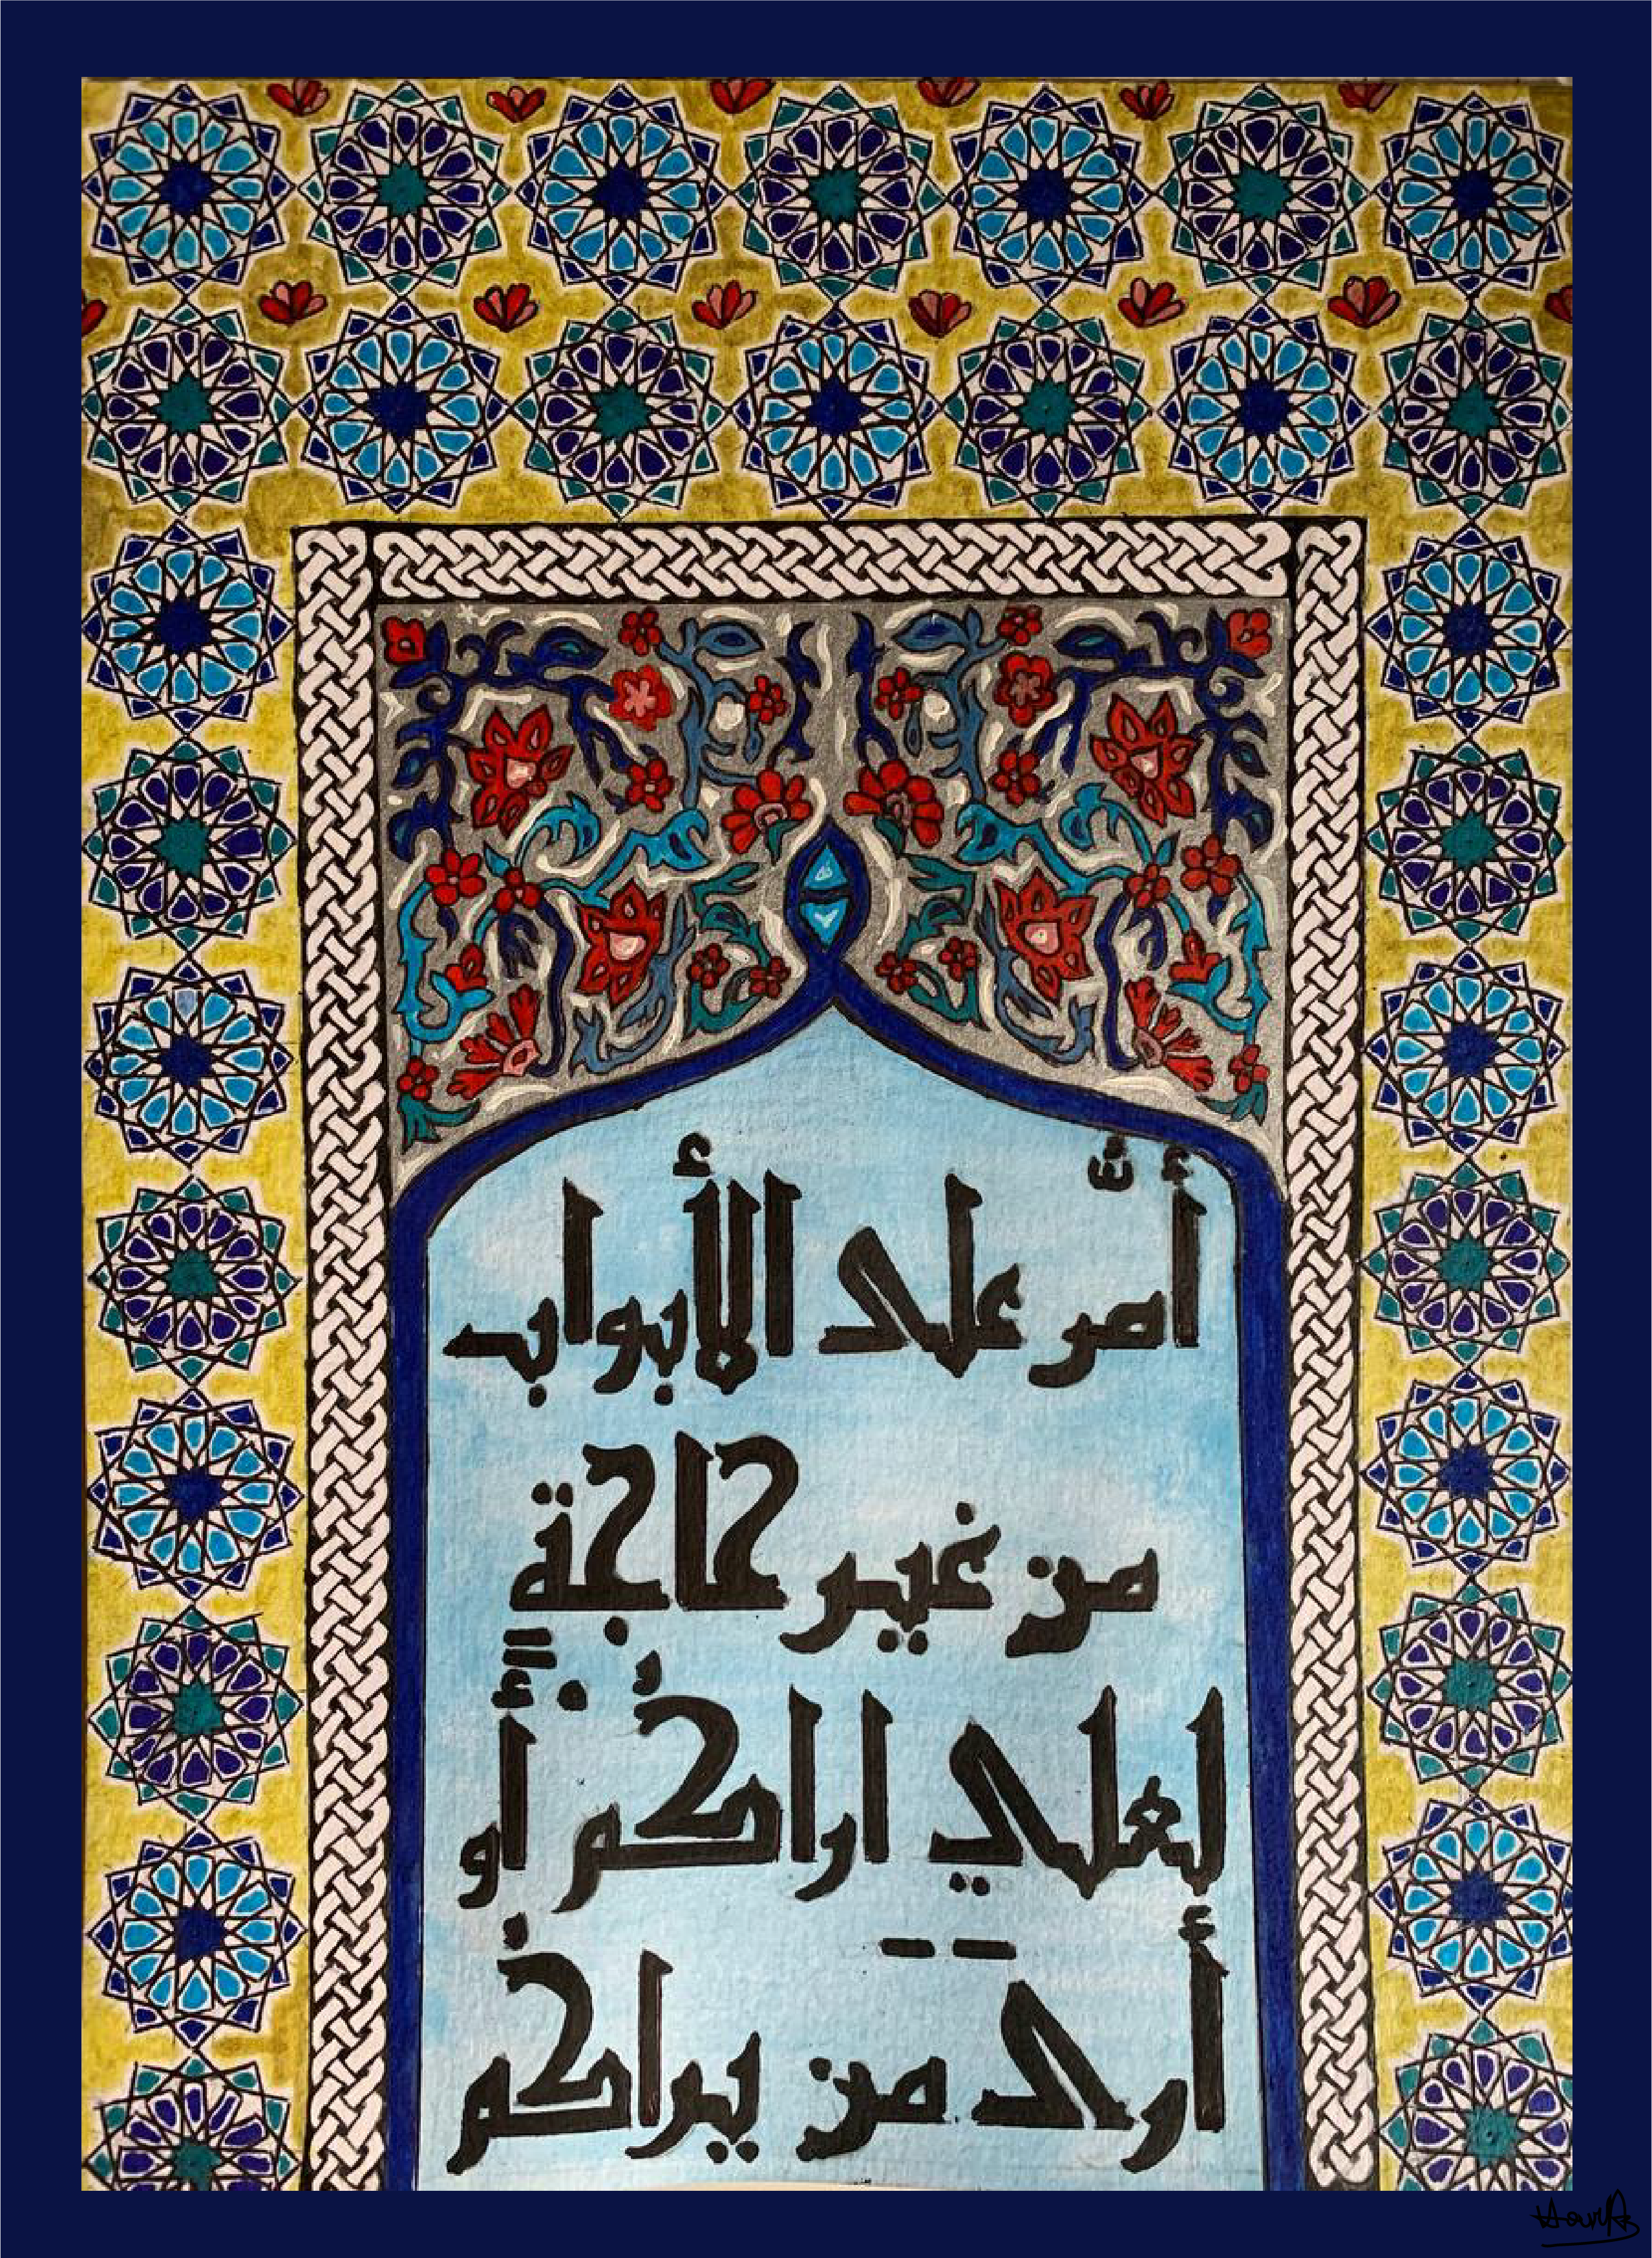 أمُّر على الأبواب
من غير حاجةٍ
لعلي اراكُم أو
أرى من يراكُم